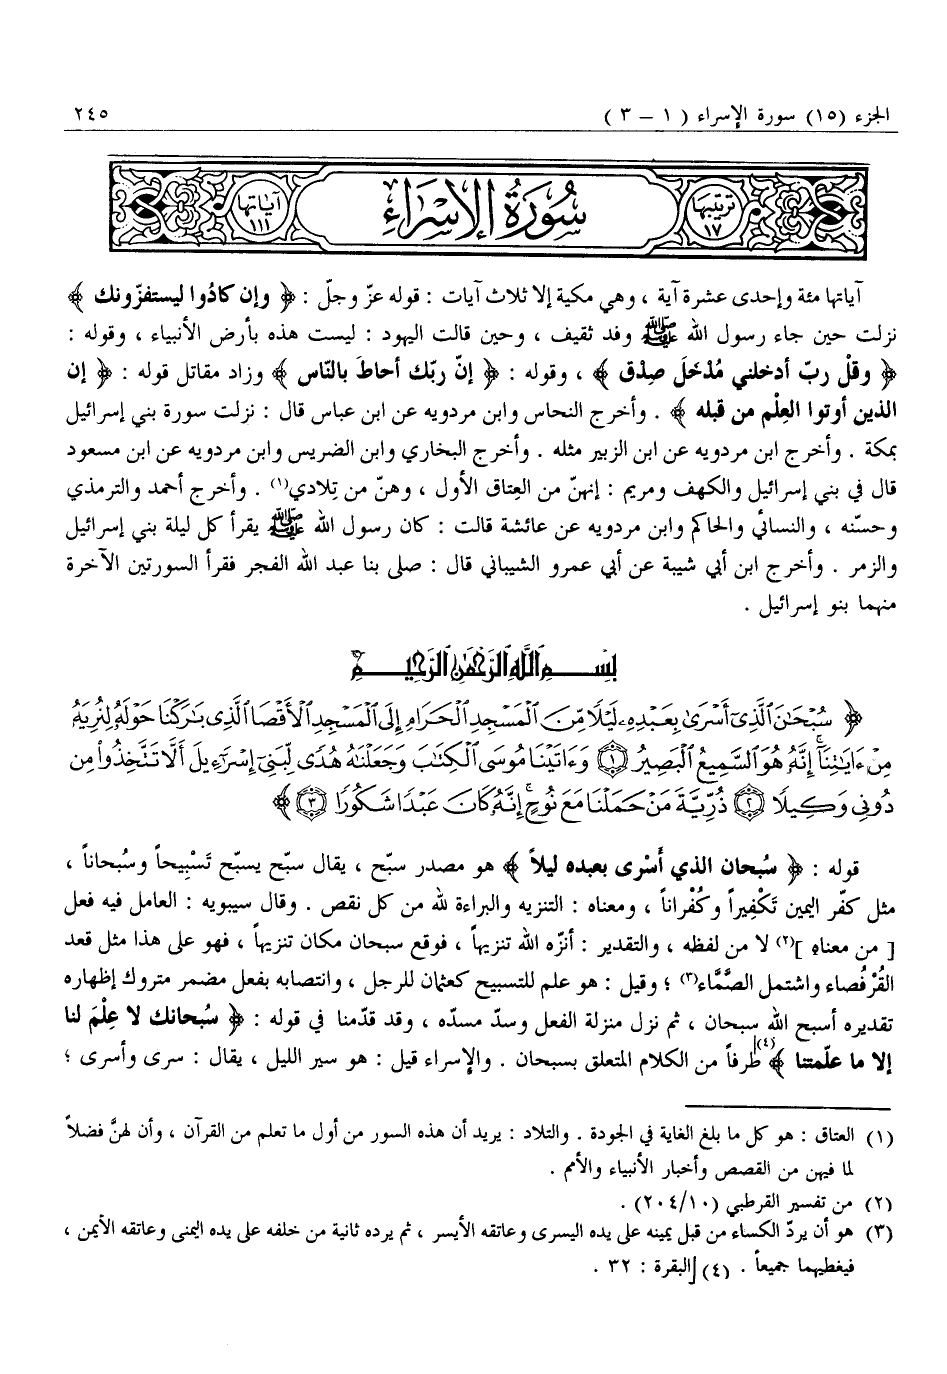 الجزء (١٥) سورة الإسراء ( ١ – ٣ ) ٢٤٥
ترتيبها ١٧ سُورَةُ الإِسْرَاءِ آياتها ١١١
آياتها مئة وإحدى عشرة آية ، وهي مكية إلا ثلاث آيات : قوله عزّ وجلّ : ﴿ وإن كادُوا ليستفزّونك ﴾
نزلت حين جاء رسول الله ﷺ وفد ثقيف ، وحين قالت اليهود : ليست هذه بأرض الأنبياء ، وقوله :
﴿ وقلْ ربّ أدخلني مُدْخَلَ صِدْق ﴾ ، وقوله : ﴿ إنّ ربّك أحاطَ بالنّاس ﴾ وزاد مقاتل قوله : ﴿ إن
الذين أوتوا العِلْم من قبله ﴾ . وأخرج النحاس وابن مردويه عن ابن عباس قال : نزلت سورة بني إسرائيل
بمكة . وأخرج ابن مردويه عن ابن الزبير مثله . وأخرج البخاري وابن الضريس وابن مردويه عن ابن مسعود
قال في بني إسرائيل والكهف ومريم : إنهنّ من العِتاق الأول ، وهنّ من تِلادي(١) . وأخرج أحمد والترمذي
وحسّنه ، والنسائي والحاكم وابن مردويه عن عائشة قالت : كان رسول الله ﷺ يقرأ كل ليلة بني إسرائيل
والزمر . وأخرج ابن أبي شيبة عن أبي عمرو الشيباني قال : صلى بنا عبد الله الفجر فقرأ السورتين الآخرة
منهما بنو إسرائيل .
بِسْمِ اللَّهِ الرَّحْمَٰنِ الرَّحِيمِ
﴿ سُبْحَانَ الَّذِي أَسْرَىٰ بِعَبْدِهِ لَيْلًا مِّنَ الْمَسْجِدِ الْحَرَامِ إِلَى الْمَسْجِدِ الْأَقْصَا الَّذِي بَارَكْنَا حَوْلَهُ لِنُرِيَهُ
مِنْ ءَايَاتِنَا إِنَّهُ هُوَ السَّمِيعُ الْبَصِيرُ ١ وَءَاتَيْنَا مُوسَى الْكِتَابَ وَجَعَلْنَاهُ هُدًى لِّبَنِي إِسْرَاءِيلَ أَلَّا تَتَّخِذُوا مِن
دُونِي وَكِيلًا ٢ ذُرِّيَّةَ مَنْ حَمَلْنَا مَعَ نُوحٍ إِنَّهُ كَانَ عَبْدًا شَكُورًا ٣ ﴾
قوله : ﴿ سُبحان الذي أَسْرى بعبده ليلاً ﴾ هو مصدر سبّح ، يقال سبّح يسبّح تَسْبِيحاً وسُبحاناً ،
مثل كفّر اليمين تَكْفِيراً وكُفْراناً ، ومعناه : التنزيه والبراءة لله من كل نقص . وقال سيبويه : العامل فيه فعل
[ من معناه ](٢) لا من لفظه ، والتقدير : أنزّه الله تنزيهاً ، فوقع سبحان مكان تنزيهاً ، فهو على هذا مثل قعد
القُرْفُصاء واشتمل الصَّمَّاء(٣) ؛ وقيل : هو علم للتسبيح كعثمان للرجل ، وانتصابه بفعل مضمر متروك إظهاره
تقديره أسبح الله سبحان ، ثم نزل منزلة الفعل وسدّ مسدّه ، وقد قدّمنا في قوله : ﴿ سُبحانك لا عِلْمَ لنا
إلا ما علّمتنا ﴾(٤) طرفاً من الكلام المتعلق بسبحان . والإسراء قيل : هو سير الليل ، يقال : سرى وأسرى ؛
(١) العتاق : هو كل ما بلغ الغاية في الجودة . والتلاد : يريد أن هذه السور من أول ما تعلم من القرآن ، وأن لهنَّ فضلاً
لما فيهن من القصص وأخبار الأنبياء والأمم .
(٢) من تفسير القرطبي (٢٠٤/١٠) .
(٣) هو أن يردّ الكساء من قبل يمينه على يده اليسرى وعاتقه الأيسر ، ثم يرده ثانية من خلفه على يده اليمنى وعاتقه الأيمن ،
فيغطيهما جميعاً . (٤) البقرة : ٣٢ .